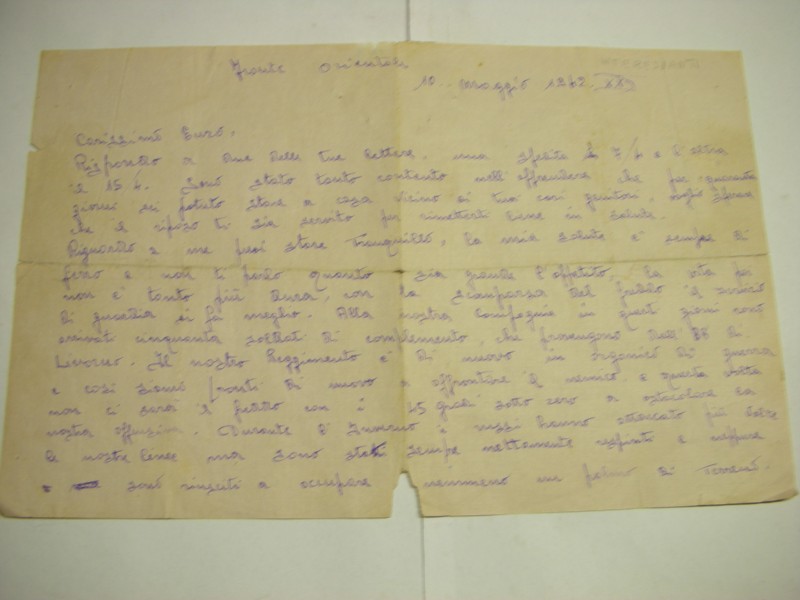 Fronte Orientale
10. Maggio 1942. XX°
Carissimo Euro.
Rispondo a due delle tue lettere, una spedita il 7/4 e l'altra
il 15 4. Sono stato tanto contento nell'apprendere che per quaranta
giorni sei potuto stare a casa vicino ai tuoi cari genitori, voglio sperare
che il riposo ti sia servito per rimetterti bene in salute.
Riguardo a me puoi stare tranquillo, la mia salute è sempre di
ferro e non ti parlo quanto sia grande l'appetito, la vita poi
non è tanto più dura, con la scomparsa del freddo il servizio
di guardia si fa meglio. Alla nostra Compagnia in questi giorni sono
arrivati cinquanta soldati di complemento, che provengono dall' 88 di
Livorno. Il nostro Reggimento è di nuovo in organico di guerra
e così siamo pronti di nuovo a affrontare il nemico e questa volta
non ci sarà il freddo con i 45 gradi sotto zero a ostacolare la
nostra offensiva. Durante l'Inverno i russi hanno attaccato più volte
le nostre linee ma sono stati sempre nettamente respinti e neppure
sono riusciti a occupare nemmeno un palmo di Terreno.